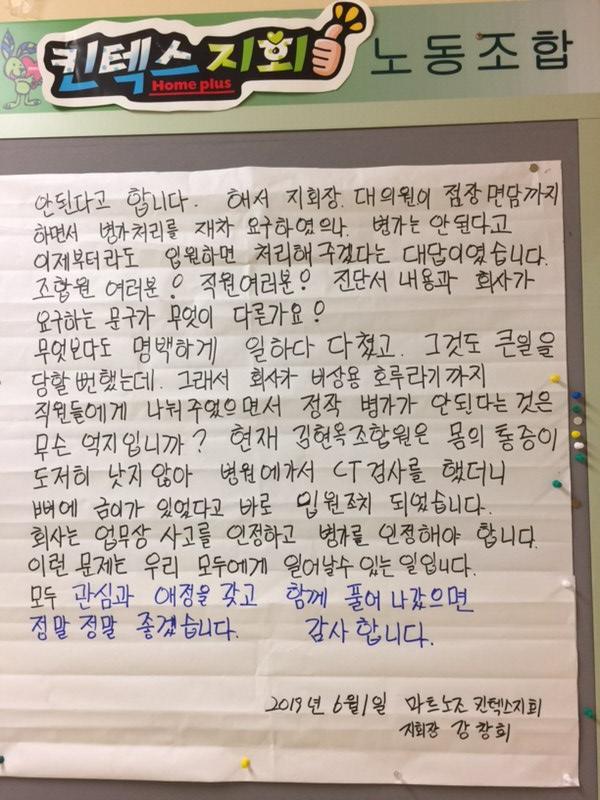 킨텍스지회 노동조합
Home plus
안된다고 합니다. 해서 지회장. 대의원이 점장 면담까지
하면서 병가처리를 재차 요구하였으나. 병가는 안된다고
이제부터라도 입원하면 처리해주겠다는 대답이였습니다.
조합원 여러분? 직원여러분? 진단서 내용과 회사가
요구하는 문구가 무엇이 다른가요?
무엇보다도 명백하게 일하다 다쳤고. 그것도 큰일을
당할뻔했는데. 그래서 회사가 비상용 호루라기까지
직원들에게 나눠주었으면서 정작 병가가 안된다는것은
무슨 억지입니까? 현재 김현옥조합원은 몸의 통증이
도저히 낫지 않아 병원에가서 CT검사를 했더니
뼈에 금이가 있었다고 바로 입원조치 되었습니다.
회사는 업무상 사고를 인정하고 병가를 인정해야 합니다.
이런 문제는 우리 모두에게 일어날수 있는 일입니다.
모두 관심과 애정을 갖고 함께 풀어 나갔으면
정말 정말 좋겠습니다. 감사합니다.
2019년 6월1일 마트노조 킨텍스지회
지회장 강창희